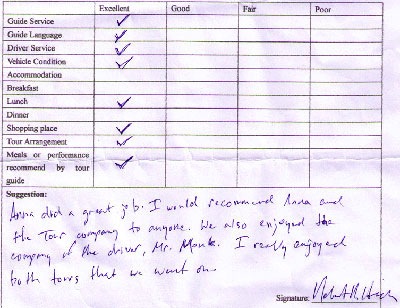 Excellent Good Fair Poor
Guide Service ✓
Guide Language ✓
Driver Service ✓
Vehicle Condition ✓
Accommodation
Breakfast
Lunch ✓
Dinner
Shopping place ✓
Tour Arrangement ✓
Meals or performance
recommend by tour ✓
guide
Suggestion:
Anna did a great job. I would recommend Anna and
the Tour company to anyone. We also enjoyed the
company of the driver, Mr. Monk. I really enjoyed
both tours that we went on.
Signature: